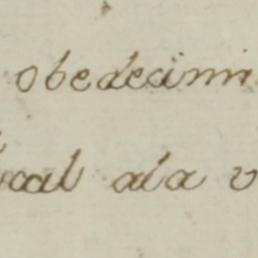 obedecimi
cal ala v